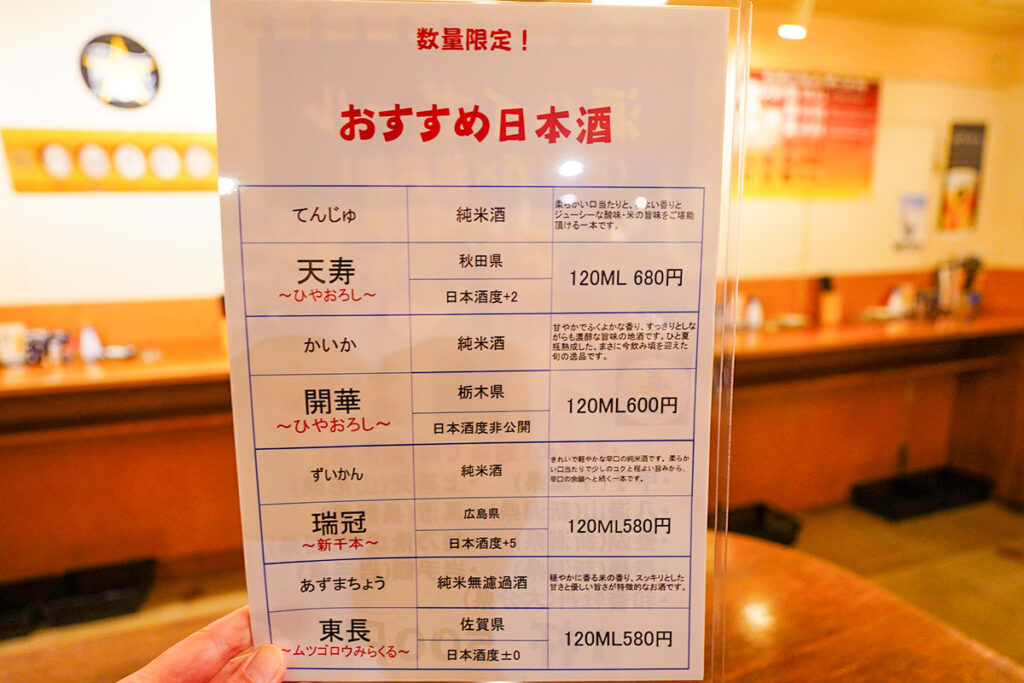 数量限定！
おすすめ日本酒
てんじゅ
純米酒
柔らかい口当たりと、
よい香りと
ジューシーな酸味・米の旨味をご堪能
頂ける一本です。
天寿
～ひやおろし～
秋田県
日本酒度+2
120ML 680円
かいか
純米酒
甘やかでふくよかな香り、すっきりとしな
がらも濃醇な旨味の地酒です。ひと夏
瓶熟成した、まさに今飲み頃を迎えた
旬の逸品です。
開華
～ひやおろし～
栃木県
日本酒度非公開
120ML600円
ずいかん
純米酒
きれいで軽やかな辛口の純米酒です。柔らか
い口当たりで少しのコクと程よい旨みから、
辛口の余韻へと続く一本です。
瑞冠
～新千本～
広島県
日本酒度+5
120ML580円
あずまちょう
純米無濾過酒
穏やかに香る米の香り、スッキリとした
甘さと優しい旨さが特徴的なお酒です。
東長
～ムツゴロウみらくる～
佐賀県
日本酒度±0
120ML580円